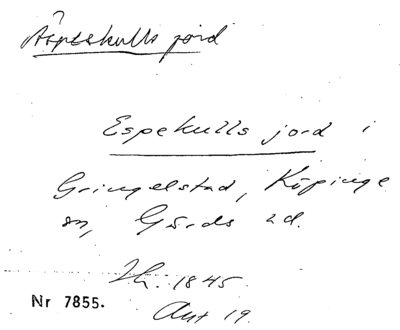 Äspeskulls jord
Espekulls jord i
Gringelstad, Köpinge
sn, Gärds hd.
Lh. 1845
Nr 7855. Akt 19.